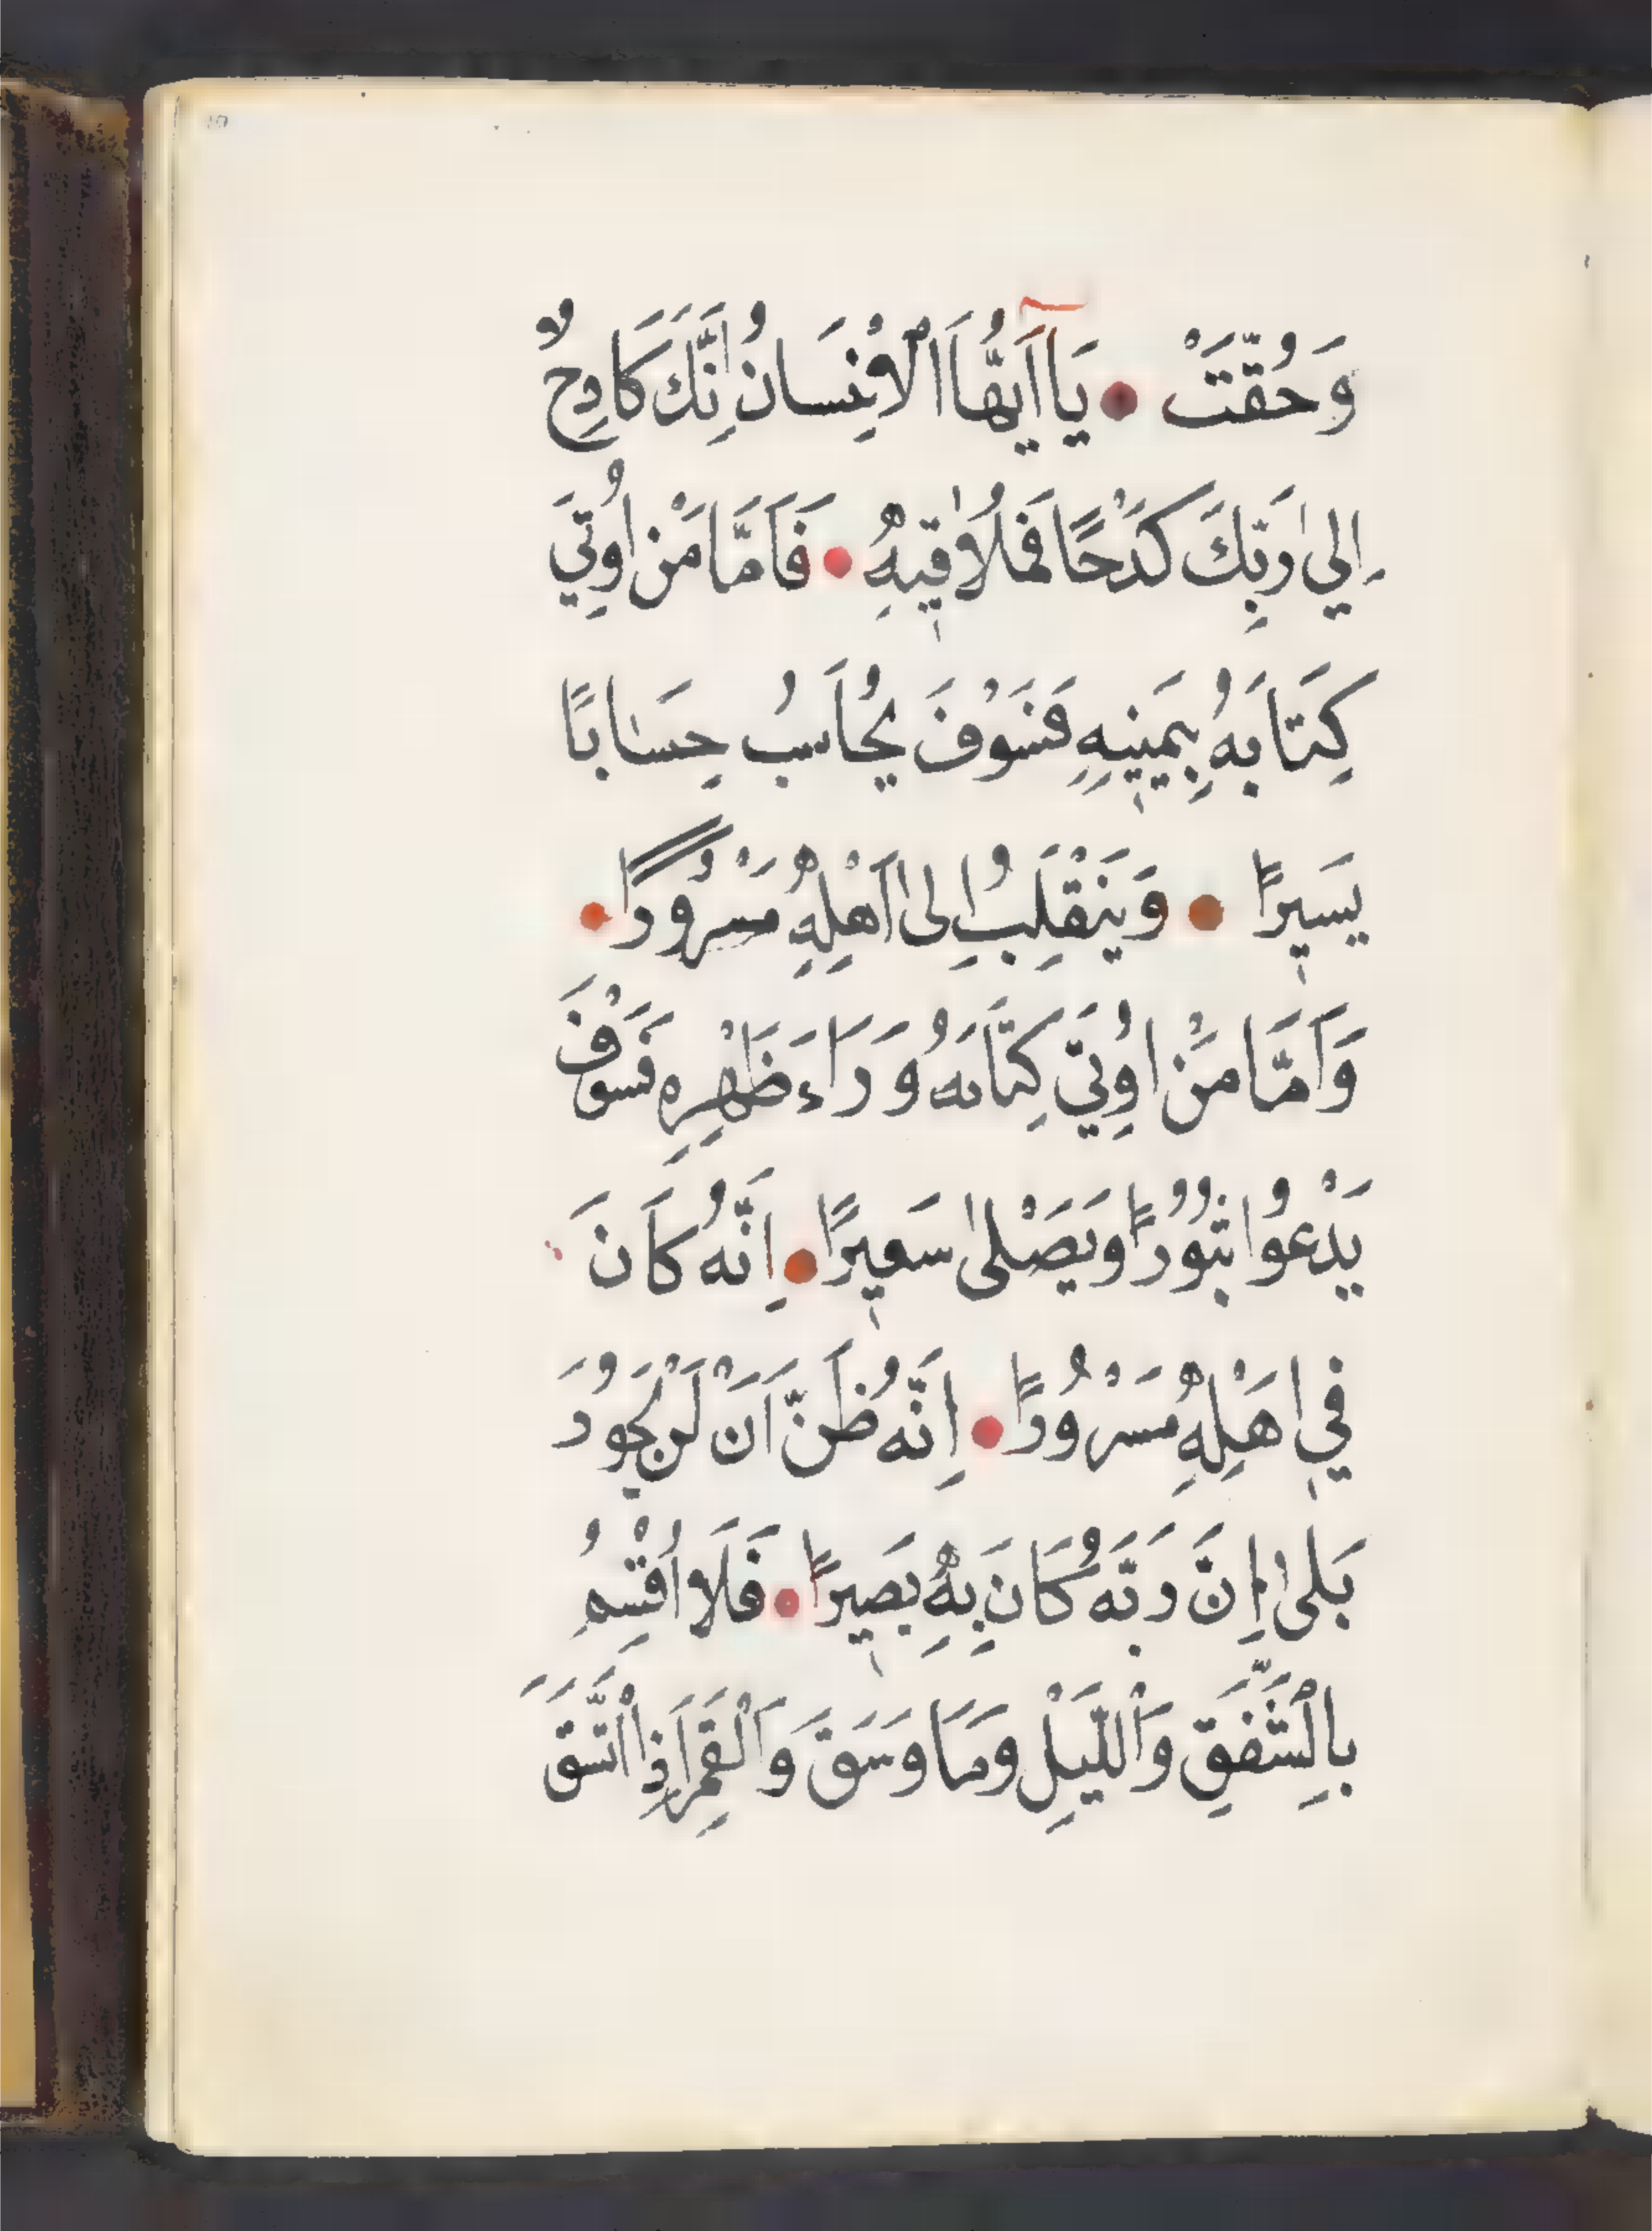 وَحُقَّتْ ● يَا اَيُّهَا الْاِنْسَانُ اِنَّكَ كَادِحٌ
اِلىٰ رَبِّكَ كَدْحًا فَمُلَاقِيهِ ● فَاَمَّا مَنْ اُوتِيَ
كِتَابَهُ بِيَمِينِهِ فَسَوْفَ يُحَاسَبُ حِسَابًا
يَسِيرًا ● وَيَنْقَلِبُ اِلىٰ اَهْلِهِ مَسْرُورًا ●
وَاَمَّا مَنْ اُوتِيَ كِتَابَهُ وَرَاءَ ظَهْرِهِ فَسَوْفَ
يَدْعُوا ثُبُورًا وَيَصْلىٰ سَعِيرًا ● اِنَّهُ كَانَ
فِي اَهْلِهِ مَسْرُورًا ● اِنَّهُ ظَنَّ اَنْ لَنْ يَحُورَ
بَلىٰ اِنَّ رَبَّهُ كَانَ بِهِ بَصِيرًا ● فَلَا اُقْسِمُ
بِالشَّفَقِ وَالَّليْلِ وَمَا وَسَقَ وَالْقَمَرِ اِذَا اتَّسَقَ